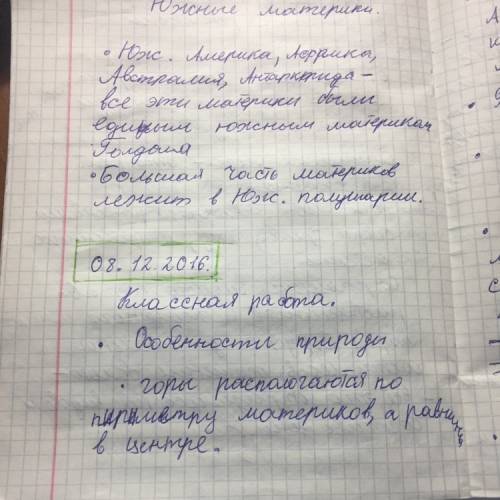 Южные материки.
• Юж. Америка, Аффрика,
Австралия, Антарктида -
все эти материки были
единым южным материком
Голдыша
• Большая часть материков
лежит в Юж. полушарии.
08. 12. 2016.
Классная работа.
• Особенности природы
• горы распологаются по
пириметру материков, а равнины
в центре.